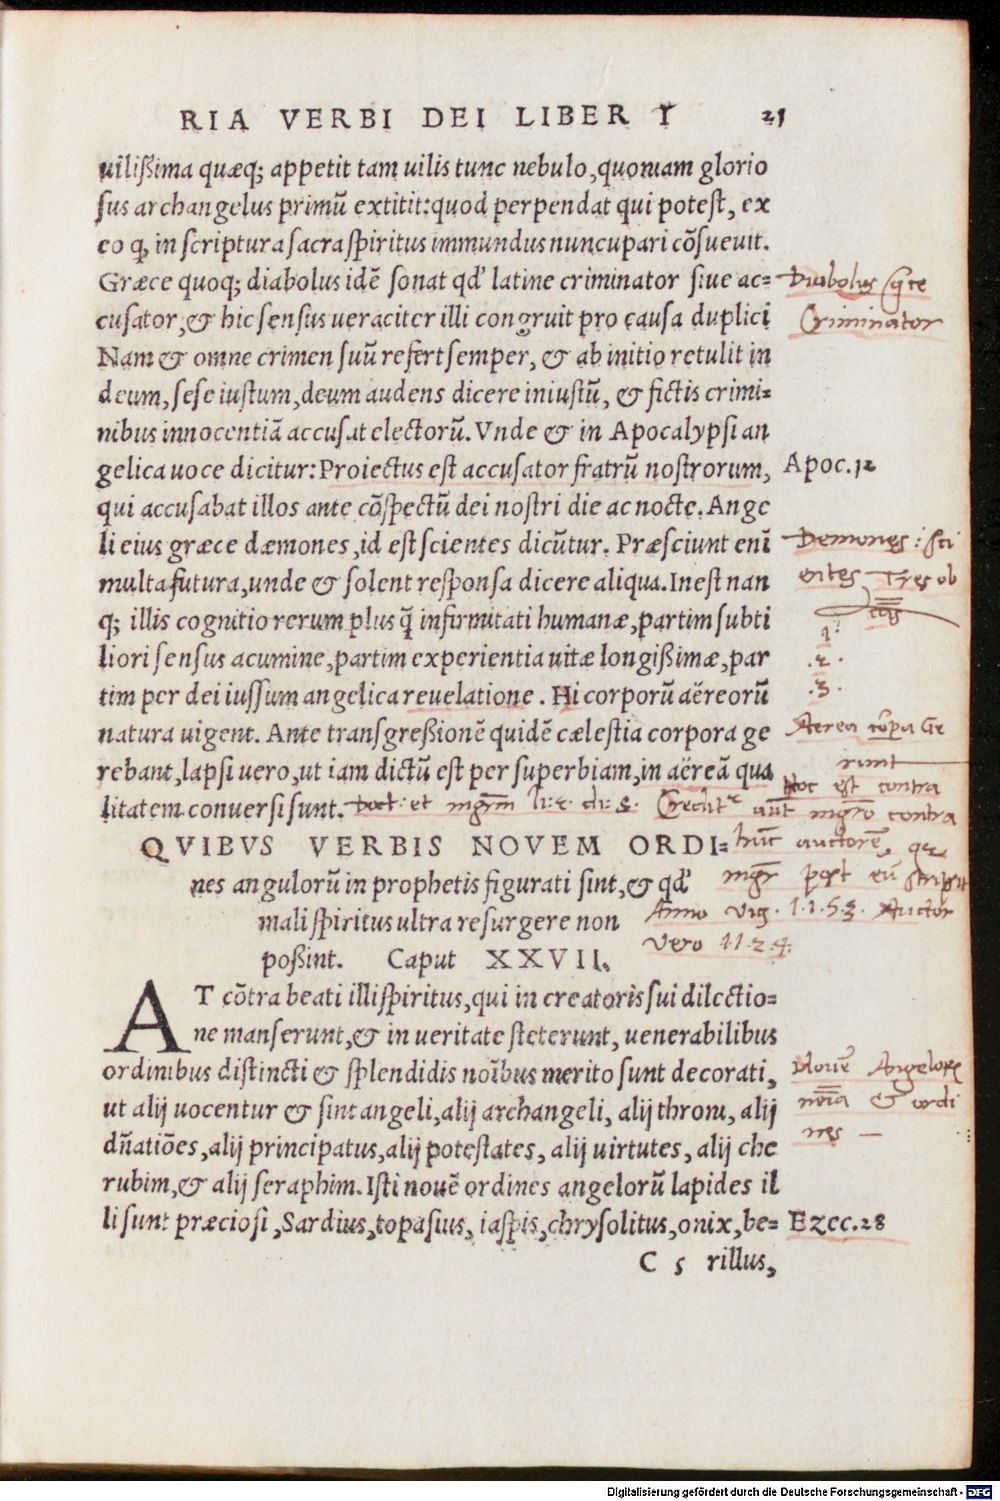 RIA VERBI DEI LIBER I 21
uilißima quæq; appetit tam uilis tunc nebulo, quoniam glorio
sus archangelus primũ extitit: quod perpendat qui potest, ex
eo q, in scriptura sacra spiritus immundus nuncupari cõsueuit.
Græce quoq; diabolus idẽ sonat qd' latine criminator siue ac=
Diabolus grece
cusator, & hic sensus ueraciter illi congruit pro causa duplici
Criminator
Nam & omne crimen suũ refert semper, & ab initio retulit in
deum, sese iustum, deum audens dicere iniustũ, & fictis crimi=
nibus innocentiã accusat electorũ. Vnde & in Apocalypsi an
gelica uoce dicitur: Proiectus est accusator fratrũ nostrorum,
Apoc. 12
qui accusabat illos ante cõspectũ dei nostri die ac nocte. Ange
li eius græce dæmones, id est scientes dicũtur. Præsciunt enĩ
Demones: sci
multa futura, unde & solent responsa dicere aliqua. Inest nan
entes Tres ob
q; illis cognitio rerum plus q̃ infirmitati humanæ, partim subti
1.
liori sensus acumine, partim experientia uitæ longißimæ, par
.2.
tim per dei iussum angelica reuelatione. Hi corporũ aëreorũ
.3.
natura uigent. Ante transgreßionẽ quidẽ cælestia corpora ge
Aerea corpa Ge
rebant, lapsi uero, ut iam dictũ est per superbiam, in aëreã qua
runt
litatem conuersi sunt.
Hoc est contra
contra
QVIBVS VERBIS NOVEM ORDI=
hũc auctorẽ,
nes angulorũ in prophetis figurati sint, & qd'
post eũ scripsit
mali spiritus ultra resurgere non
Anno 1.1.5.3. Auctor
poßint. Caput XXVII.
vero 11.2.4.
AT cõtra beati illi spiritus, qui in creatoris sui dilectio=
ne manserunt, & in ueritate steterunt, uenerabilibus
ordinibus distincti & splendidis noĩbus merito sunt decorati,
Nouẽ Angelorũ
ut alij uocentur & sint angeli, alij archangeli, alij throni, alij
noĩa & ordi
dñatiões, alij principatus, alij potestates, alij uirtutes, alij che
nes
rubim, & alij seraphim. Isti nouẽ ordines angelorũ lapides il
li sunt præciosi, Sardius, topasius, iaspis, chrysolitus, onix, be=
Ezec. 28
C 5 rillus,
Digitalisierung gefördert durch die Deutsche Forschungsgemeinschaft - DFG